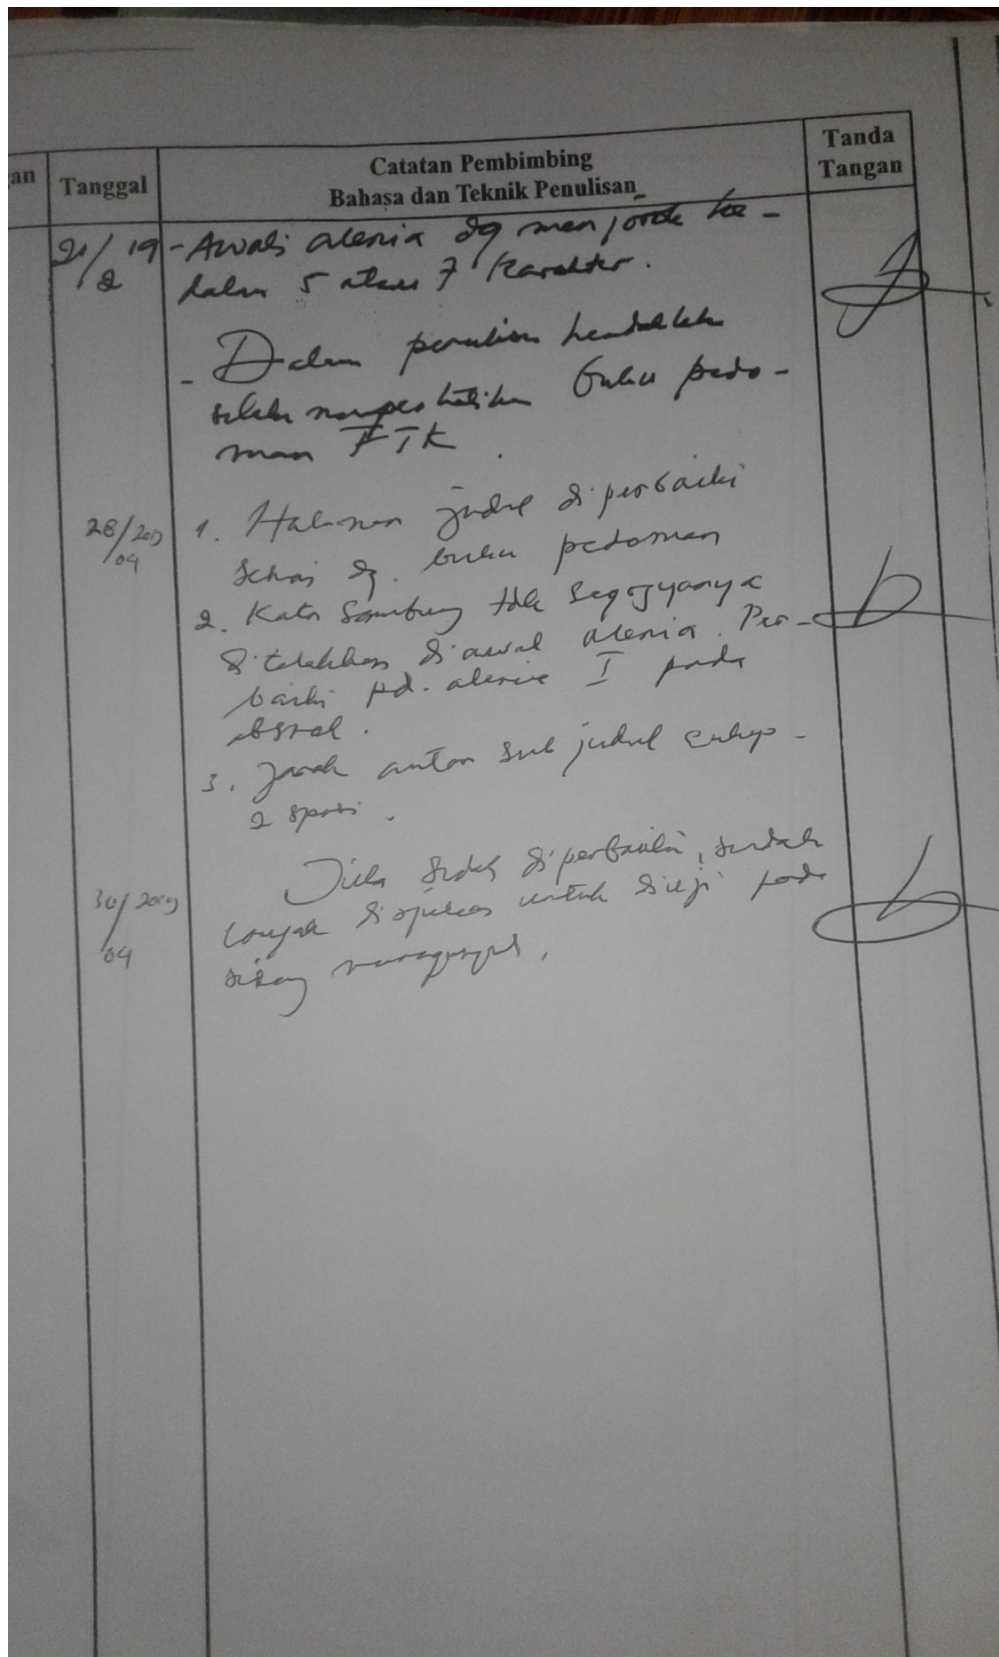 an
Tanggal
Catatan Pembimbing
Bahasa dan Teknik Penulisan
Tanda
Tangan
21/2 19
- Awali alenia dg menjorok ke-
dalam 5 atau 7 karakter.
- Dalam penulisan hendaklah
selalu memperhatikan buku pedo-
man FTK.
28/2019
04
1. Halaman judul diperbaiki
sesuai dg. buku pedoman
2. Kata Sambung tdk segogyanya
diletakkan diawal alenia. Per-
baiki pd. alenia I pada
abstrak.
3. Jarak antar sub judul cukup
2 spasi.
30/2019
04
Jika sudah diperbaiki, sudah
layak diajukan untuk diuji pada
sidang munaqasyah.